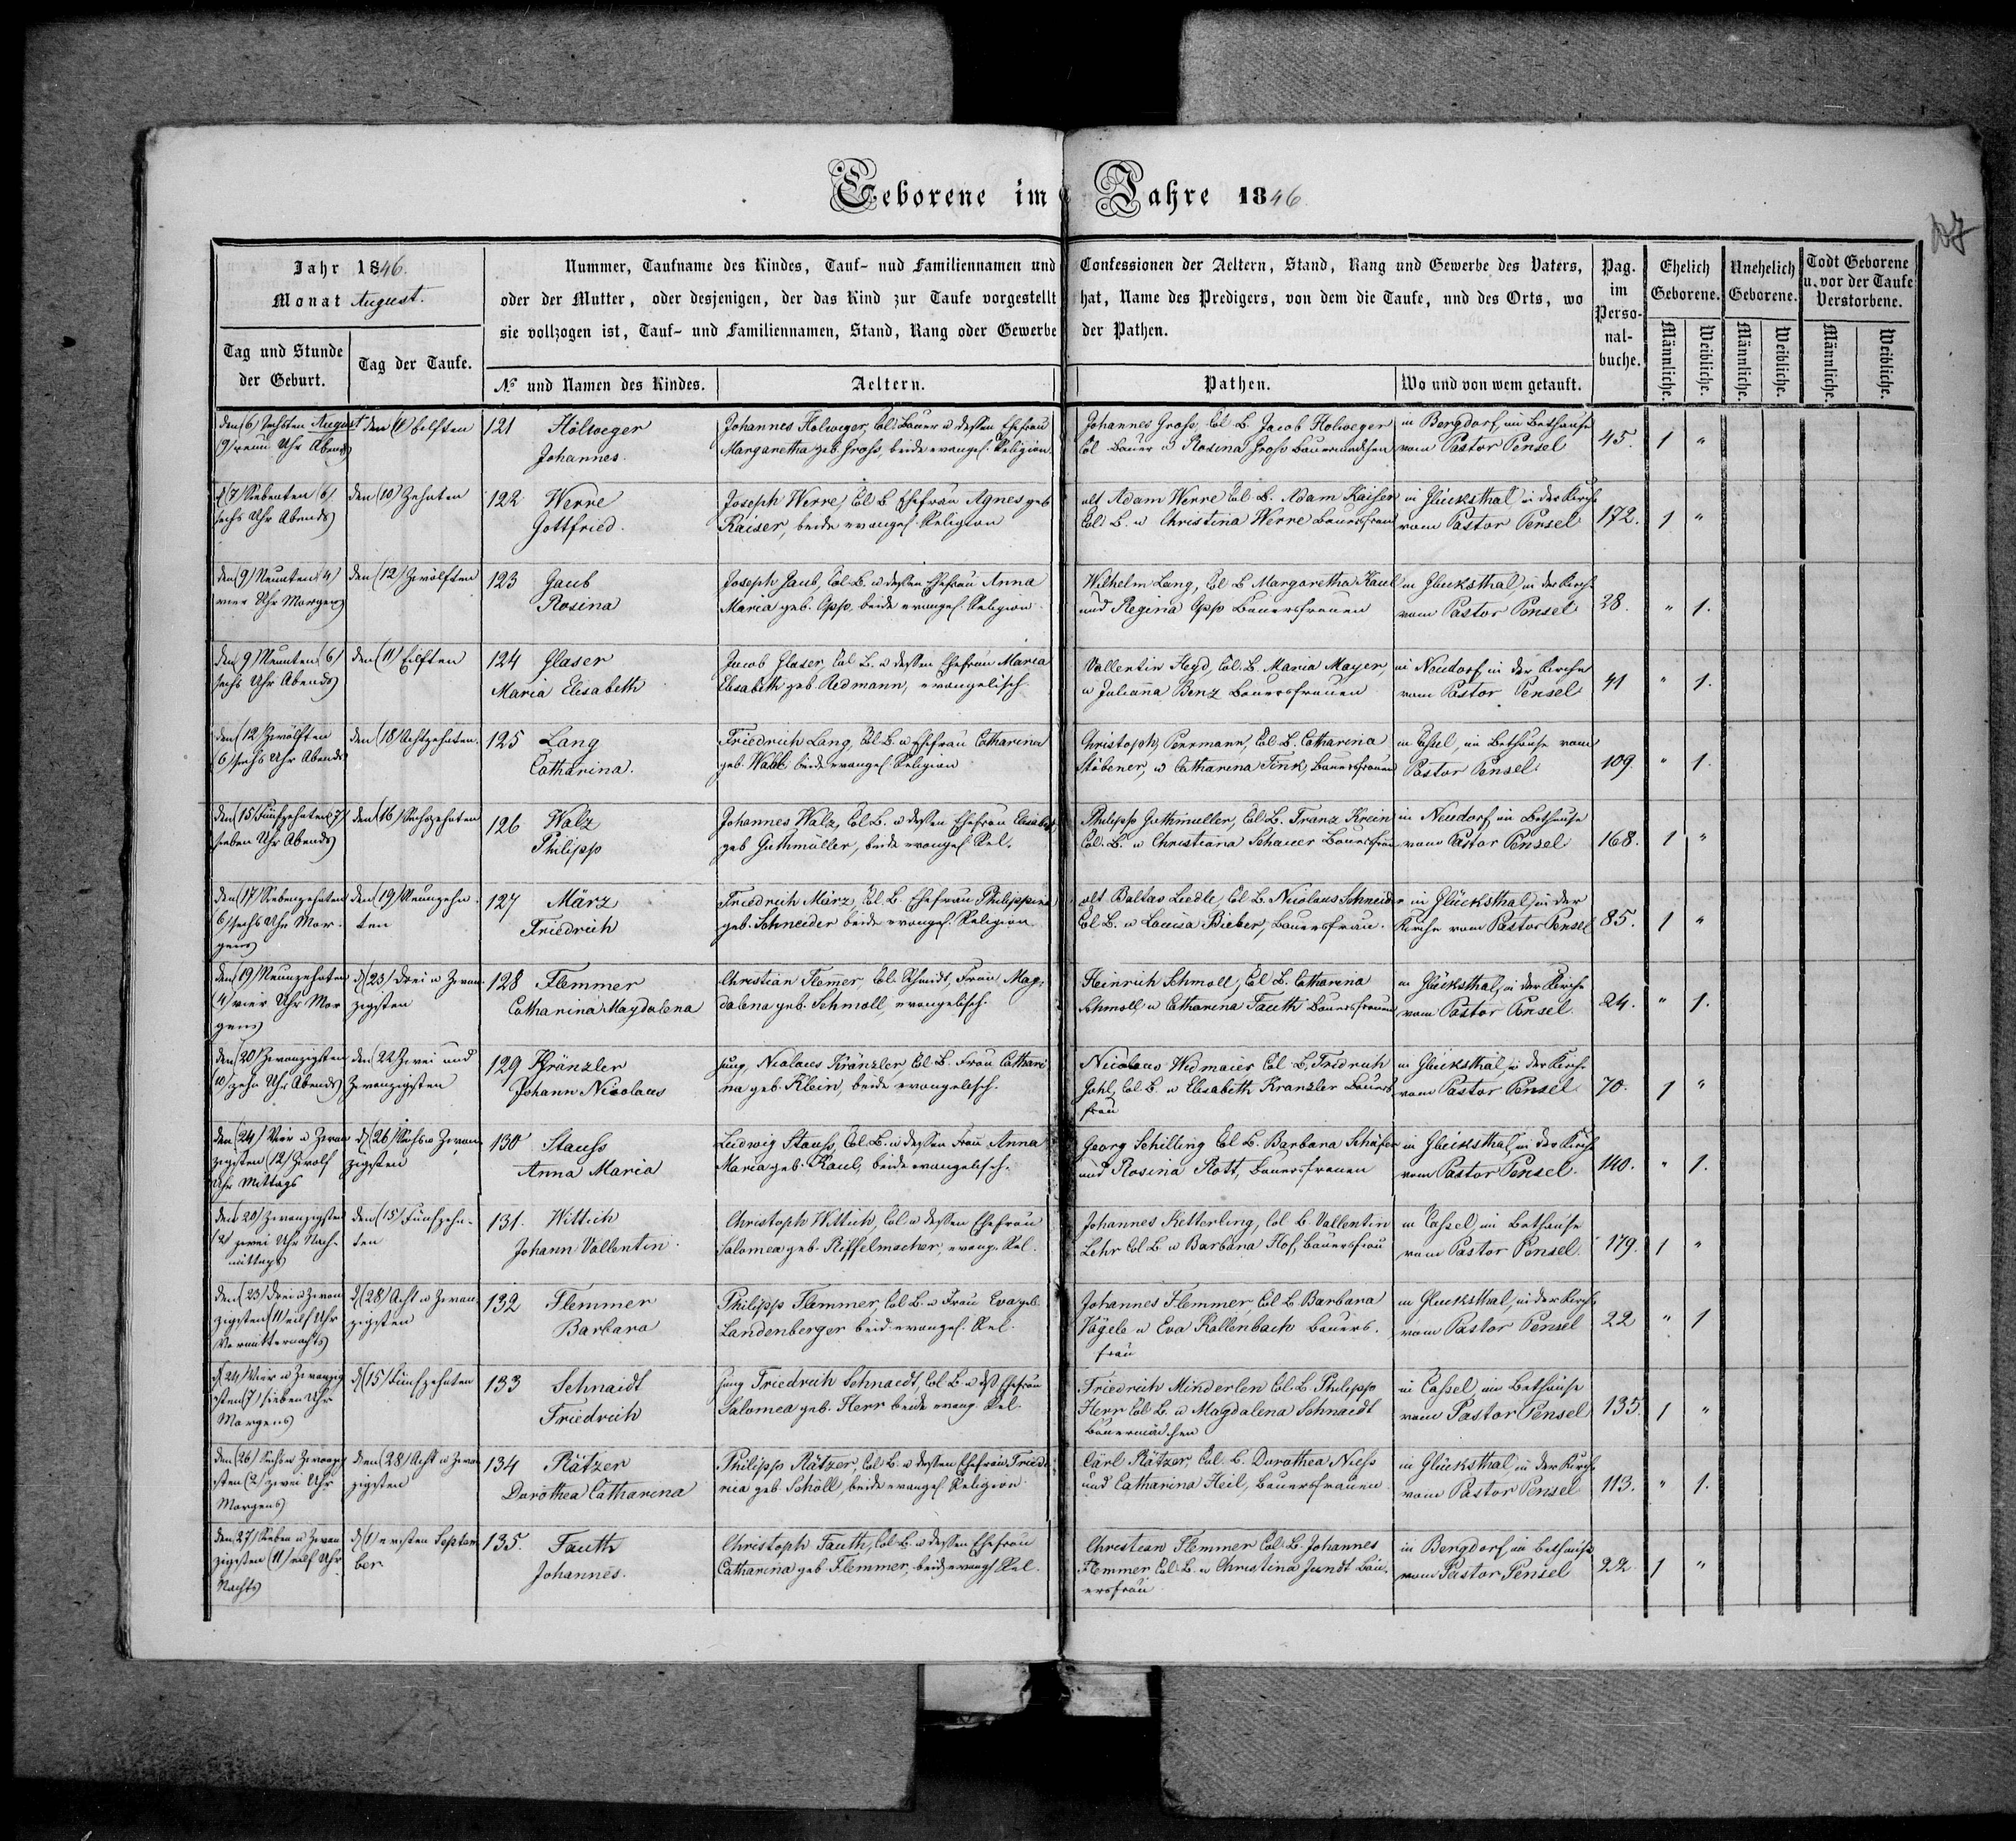 Geborene im Jahre 1846
107
Jahr 1846.
Monat August.
Tag und Stunde der Geburt.
Tag der Taufe.
Nummer, Taufname des Kindes, Tauf- nud Familiennamen und Confessionen der Aeltern, Stand, Rang und Gewerbe des Vaters,
oder der Mutter, oder desjenigen, der das Kind zur Taufe vorgestellt hat, Name des Predigers, von dem die Taufe, und des Orts, wo
sie vollzogen ist, Tauf- und Familiennamen, Stand, Rang oder Gewerbe der Pathen.
№ und Namen des Kindes.
Aeltern.
Pathen.
Wo und von wem getauft.
Pag. im Perso- nal- buche.
Ehelich Geborene.
Unehelich Geborene.
Todt Geborene u. vor der Taufe Verstorbene.
Männliche. Weibliche. Männliche. Weibliche. Männliche. Weibliche.
den (6) Sechsten August den (11) Eilften 121 Hölweger Johannes Holweger, Col. Bauer u dessen Ehefrau Johannes Gross, Col. B. Jacob Holweger in Bergdorf, im Bethause 45. 1 "
9/ neun Uhr Abends Johannes. Margaretha geb. Gross, beide evangel. Religion Col. Bauer u Rosina Gross Bauermädchen vom Pastor Pensel
d (7) Siebenten (6) den (10) Zehnten 122 Werre Joseph Werre, Col. B. Ehefrau Agnes geb alt Adam Werre Col. B. Adam Kaiser in Glücksthal in der Kirche 172. 1 "
sechs Uhr Abends Gottfried. Kaiser, beide evangel. Religion Col. B. u Christina Werre Bauersfrau vom Pastor Pensel
den (9) Neunten (4) den (12) Zwölften 123 Gaub Joseph Gaub, Col. B. u dessen Ehefrau Anna Wilhelm Lang, Col. B. Margaretha Kaul in Glücksthal in der Kirche 28. " 1.
vier Uhr Morgens Rosina Maria geb. Opp, beide evangel. Religion und Regina Opp Bauersfrauen vom Pastor Pensel
den 9) Neunten (6) den (11) Eilften 124 Glaser Jacob Glaser, Col. B. u dessen Ehefrau Maria Vallentin Heyd, Col. B. Maria Mayer, in Neudorf in der Kirche 41 " 1.
sechs Uhr Abends Maria Elisabeth Elisabeth geb. Redmann, evangelisch u Julianna Benz Bauersfrauen vom Pastor Pensel
den (12) Zwölften den (18) Achtzehnten 125 Lang Friedrich Lang, Col. B. u Ehefrau Catharina Christoph Perrmann, Col. B. Catharina in Cassel, im Bethause vom 109. " 1.
(6) sechs Uhr Abends Catharina. geb. Wahl beide evangel. Religion Stöbener, u Catharina Fink, Bauersfrauen Pastor Pensel
den (15) Fünfzehnten (7) den (16) Sechszehnten 126 Walz Johannes Walz, Col. B. u dessen Ehefrau Elisabeth Philipp Guthmüller, Col. B. Franz Krein in Neudorf im Bethause 168. 1 "
sieben Uhr Abends Philipp geb Guthmüller, beide evangel. Rel. Col. B. u Christiana Schauer Bauersfrau vom Pastor Pensel
den (17) Siebenzehnten den (19) Neunzehn- 127 März Friedrich März, Col. B. Ehefrau Philippina alt Baltas Liedle, Col. B. Nicolaus Schneider in Glücksthal, in der 85. 1 "
(6) sechs Uhr Mor- ten Friedrich geb. Schneider beide evangel. Religion. Col. B. u Louisa Bieber, Bauersfrau. Kirche vom Pastor Pensel
gens
den (19) Neunzehnten d (23) Drei u Zwan- 128 Flemmer Christian Flemer, Col. Schmidt, Frau Mag- Heinrich Schmoll, Col. B. Catharina in Glücksthal, in der Kirche 24. " 1.
(4) vier Uhr Mor- zigsten Catharina Magdalena dalena geb. Schmoll, evangelisch. Schmoll u Catharina Fauth Bauersfrauen vom Pastor Pensel
gens
den (20) Zwanzigsten den (22) Zwei und 129 Kränzler jung Nicolaus Kränzler Col. B. Frau Cathari- Nicolaus Widmaier Col. B. Fridrich in Glücksthal, in der Kirche 70. 1 "
(10) zehn Uhr Abends Zwanzigsten Johann Nicolaus na geb. Klein, beide evangelisch. Gohl, Col. B. u Elisabeth Kranzler Bauers vom Pastor Pensel
frau
den (24) Vier u Zwan- d (26) Sechs u Zwan- 130 Stauss Ludwig Stauss, Col. B. u dessen Frau Anna Georg Schilling Col. B. Barbara Schäfer in Glücksthal, in der Kirche 140. " 1.
zigsten (12) Zwölf zigsten Anna Maria Maria geb. Kaul, beide evangelisch. und Rosina Rott, Bauersfrauen vom Pastor Pensel.
Uhr Mittags
den 20) Zwanzigsten den (15) Fünfzehn- 131. Wittich Christoph Wittich, Col. u dessen Ehefrau Johannes Ketterling, Col. B. Vallentin in Cassel, im Bethause 179. 1 "
(2) zwei Uhr Nach- ten Johann Vallentin. Salomea geb. Riffelmacher, evang. Rel. Lehr Col. B. u Barbara Hof, Bauersfrau vom Pastor Pensel.
mittags
den (23) Drei u Zwan- d (28) Acht u Zwan- 132 Flemmer Philipp Flemmer, Col. B. u Frau Eva geb. Johannes Flemmer Col. B. Barbara in Glucksthal, in der Kirche 22 " 1
zigsten (11) eilf Uhr zigsten Barbara Landenberger beide evangel. Rel. Vögele u Eva Kallenbach Bauers- vom Pastor Pensel
Vormitternachts frau
d 24) Vier u Zwanzig- d (15) Fünfzehnten 133 Schnaidt jung Friedrich Schnaidt, Col. B. u dess Ehefrau Friedrich Minderlen Col. B. Philipp in Cassel im Bethause 135. 1 "
sten (7) sieben Uhr Friedrich Salomea geb. Herr beide evang. Rel. Herr Col. B. u Magdalena Schnaidt vom Pastor Pensel
Morgens Bauermädchen
den (26) Sechs u Zwanzig- den (28) Acht u Zwan- 134 Rätzer Philipp Rätzer, Col. B. u dessen Ehefrau Friede- Carl Rätzer Col. B. Dorothea Niess in Glücksthal, in der Kirche 113. " 1.
sten (2) zwei Uhr zigsten Dorothea Catharina rica geb Schöll, beide evangel. Religion und Catharina Heil, Bauersfrauen vom Pastor Pensel
Morgens
den 27) Sieben u Zwan- d (1) ersten Septem- 135. Fauth Christoph Fauth, Col. B. u dessen Ehefrau Christian Flemmer Col. B. Johannes in Bergdorf im Bethause 22 1 "
zigsten (11) eilf Uhr ber Johannes. Catharina geb. Flemmer, beide evangl Rel. Flemmer Col. B. u Christina Jundt Bau- vom Pastor Pensel
Nachts ersfrau